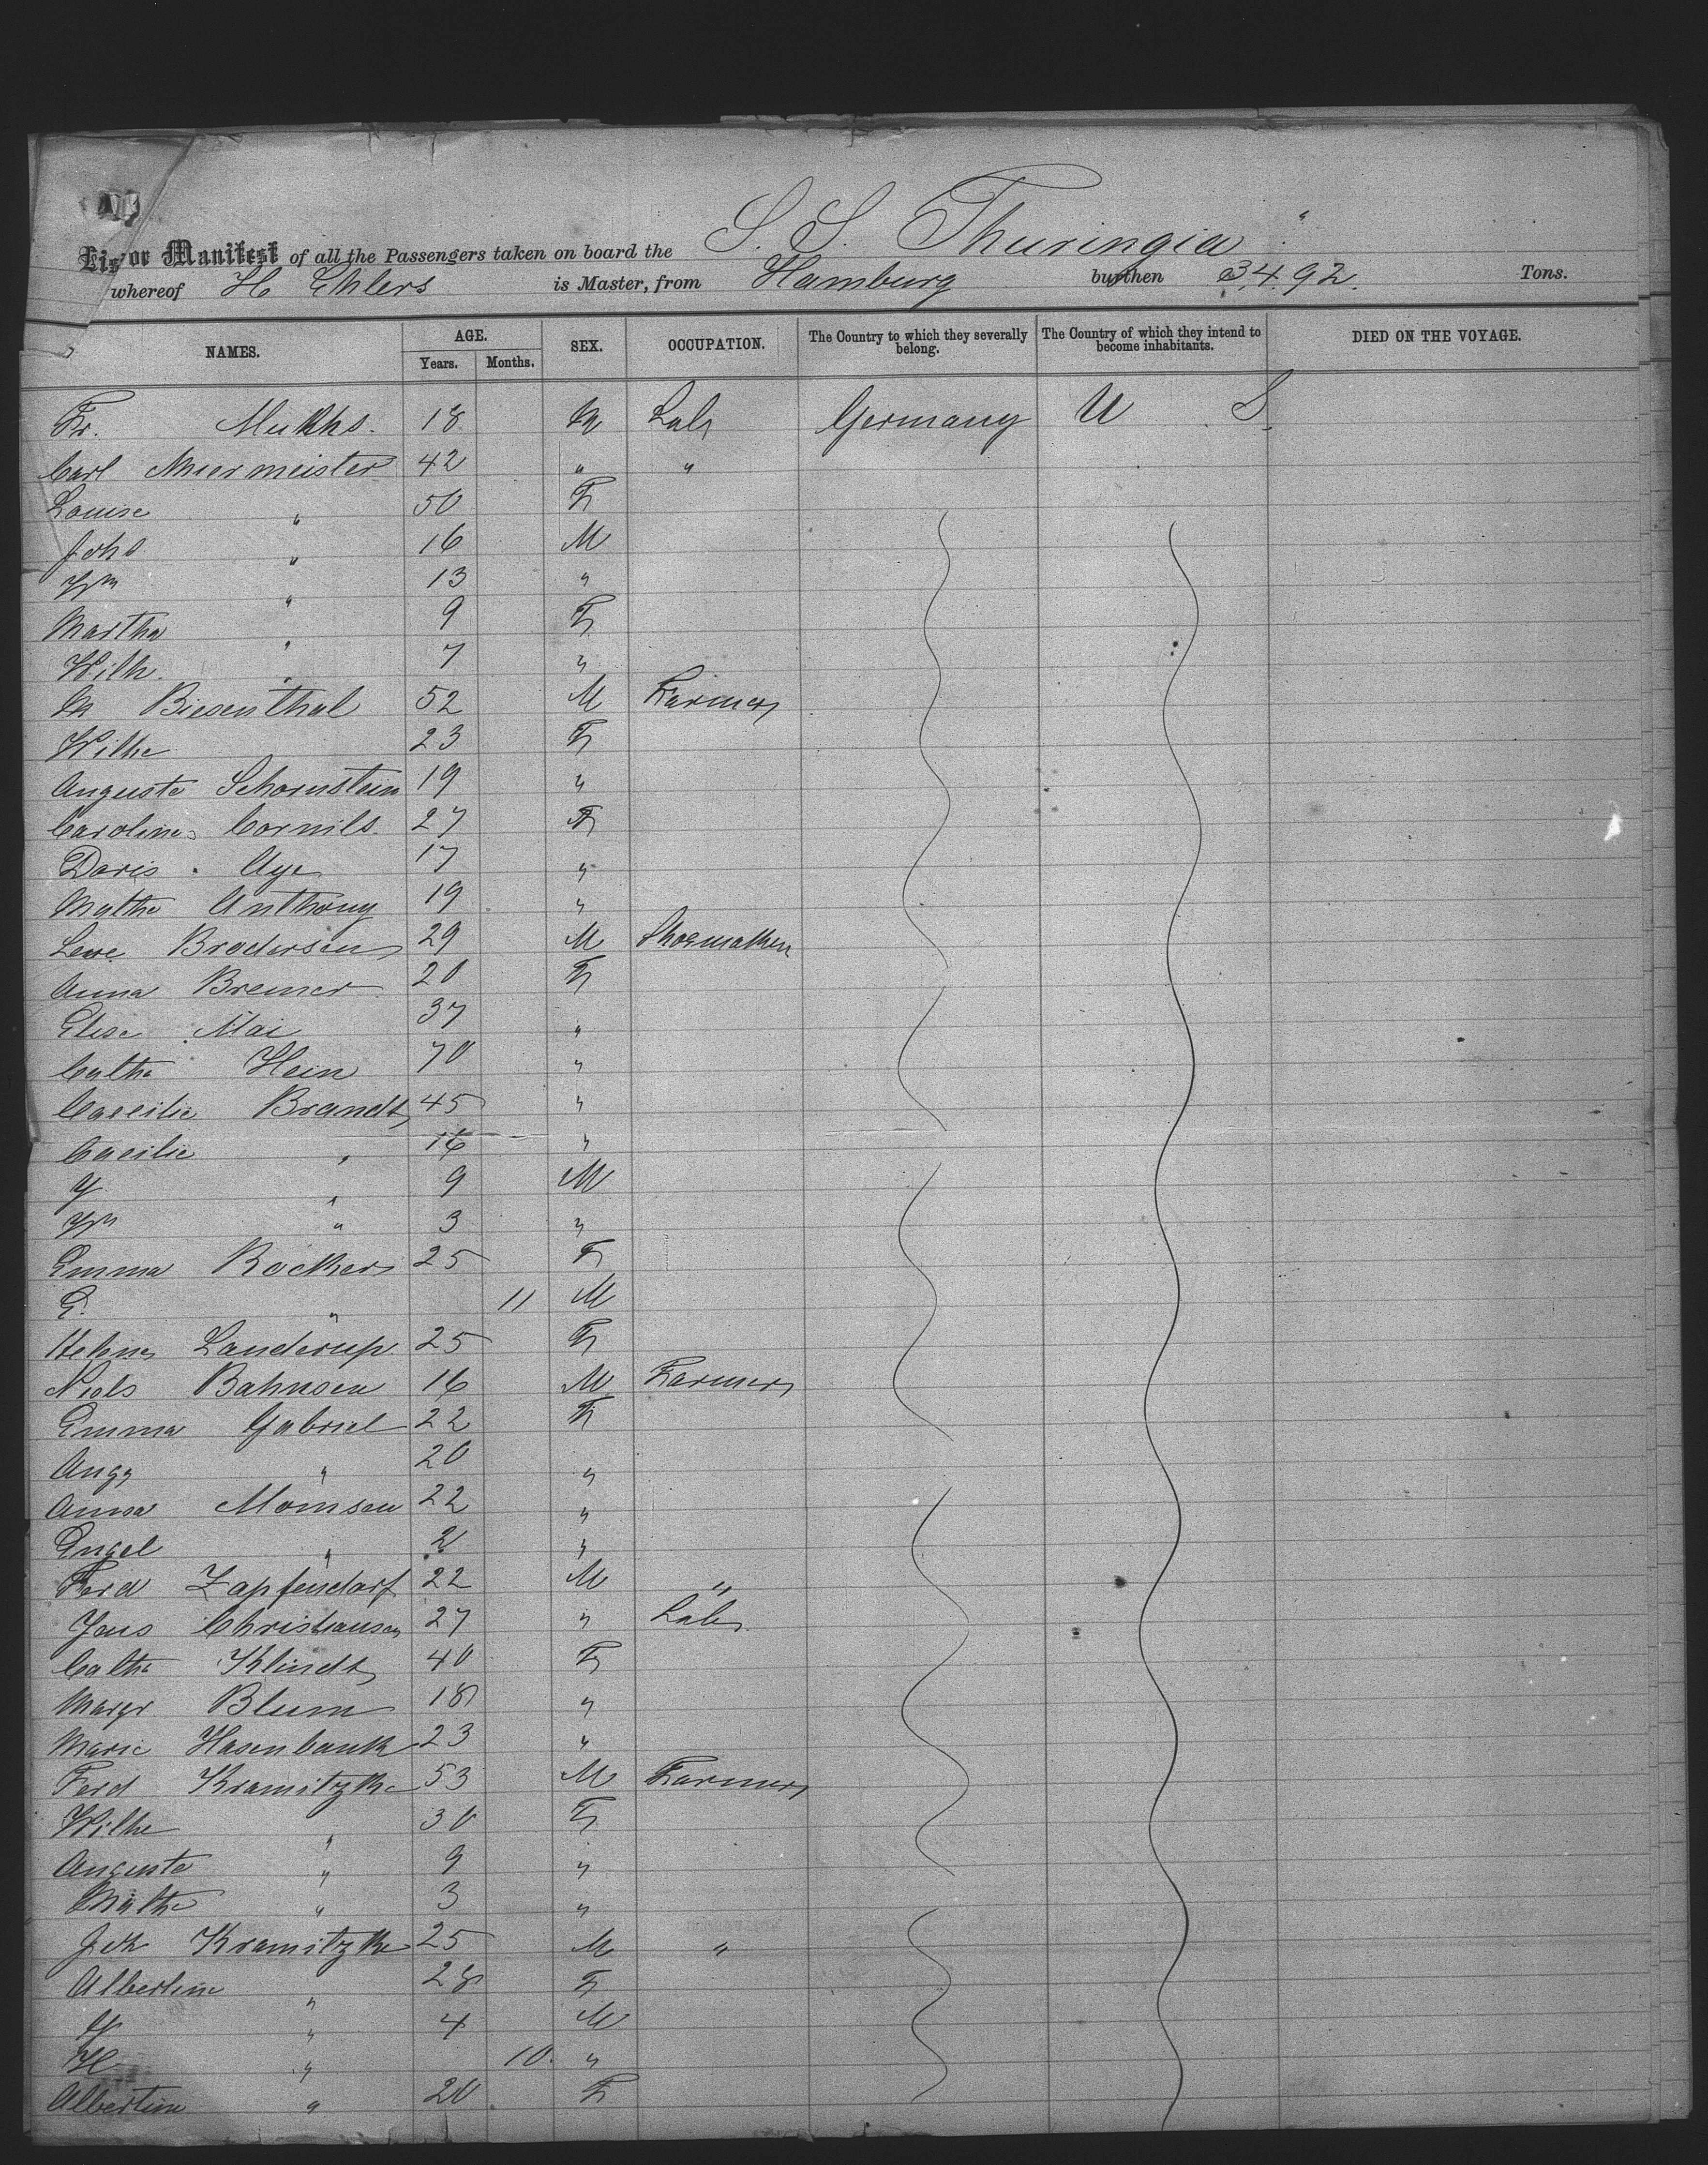 List or Manifest of all the Passengers taken on board the S. S. Thuringia
whereof H Ehlers is Master, from Hamburg burthen 3492. Tons.
NAMES. AGE. Years. Months. SEX. OCCUPATION. The Country to which they severally belong. The Country of which they intend to become inhabitants. DIED ON THE VOYAGE.
Fr. 18 M Labr Germany U S.
Carl Meermeister 42 " "
Louise " 50 F
Johs " 16 M
Wm " 13 "
Martha " 9 F
Wilh. " 7 "
M Biesenthal 52 M Farmer
Wilhe 23 F
Auguste Schornstein 19 "
Caroline Cornils 27 F
Doris Aye 17 "
Mathe Anthony 19 "
Lewe Brodersen 29 M Shoemaker
Anna Bremer 20 F
Elise Mai 37 "
Cathe Hein 70 "
Caecilie Brandt 45 "
Caeilie " 16 "
9 M
Wm " 3 "
Emma Rockers 25 F
G. " 11 M
Helene Landerup 25 F
Niels Bahnsen 16 M Farmer
Emma Gabriel 22 F
Augs " 20 "
Anna Momsen 22 "
Engel " 2 "
Ferd Zapfendorf 22 M "
Jens Christiansen 27 " Labr
Cathe Klindt 40 F
Margr Blum 18 "
Marie Hasenbank 23 "
Ferd Kramitzke 53 M Farmer
Wilhe " 30 F
Auguste " 9 "
Mathe " 3 "
Joh Kramitzke 25 M "
Albertine " 28 F
" 4 M
H " 10. "
Albertine " 20 F